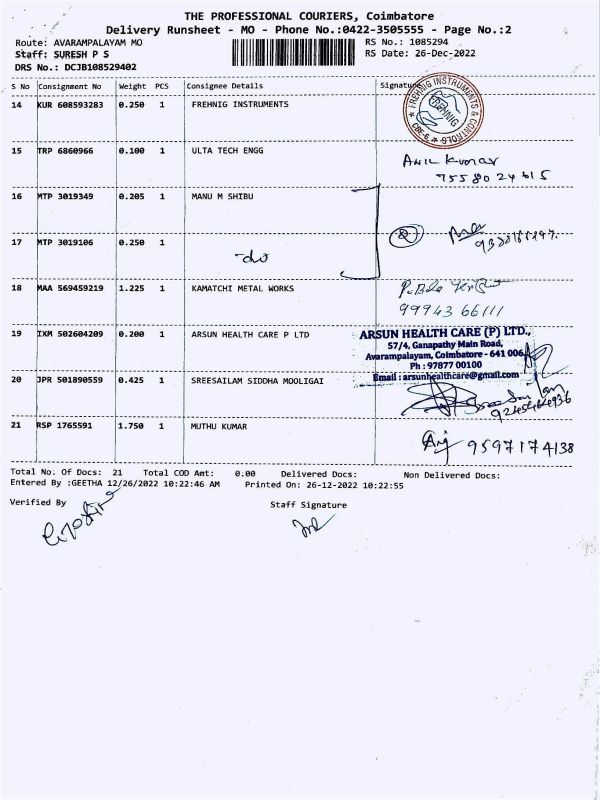 THE PROFESSIONAL COURIERS, Coimbatore
Delivery Runsheet - MO - Phone No.:0422-3505555 - Page No.:2
Route: AVARAMPALAYAM MO
RS No.: 1085294
Staff: SURESH P S
RS Date: 26-Dec-2022
DRS No.: DCJB108529402
S No Consignment No Weight PCS Consignee Details Signature
14 KUR 608593283 0.250 1 FREHNIG INSTRUMENTS
FREHNIG INSTRUMENTS & CONTROLS
FREHNIG
CBE-6
15 TRP 6860966 0.100 1 ULTA TECH ENGG
Anil Kumar
7558024615
16 MTP 3019349 0.205 1 MANU M SHIBU
17 MTP 3019106 0.250 1
-do
18 MAA 569459219 1.225 1 KAMATCHI METAL WORKS
99943 66111
19 IXM 502604209 0.200 1 ARSUN HEALTH CARE P LTD
ARSUN HEALTH CARE (P) LTD.,
57/4, Ganapathy Main Road,
Avarampalayam, Coimbatore - 641 006.
Ph : 97877 00100
Email : arsunhealthcare@gmail.com
20 JPR 501890559 0.425 1 SREESAILAM SIDDHA MOOLIGAI
21 RSP 1765591 1.750 1 MUTHU KUMAR
9597174138
Total No. Of Docs: 21 Total COD Amt: 0.00 Delivered Docs: Non Delivered Docs:
Entered By :GEETHA 12/26/2022 10:22:46 AM Printed On: 26-12-2022 10:22:55
Verified By
Staff Signature